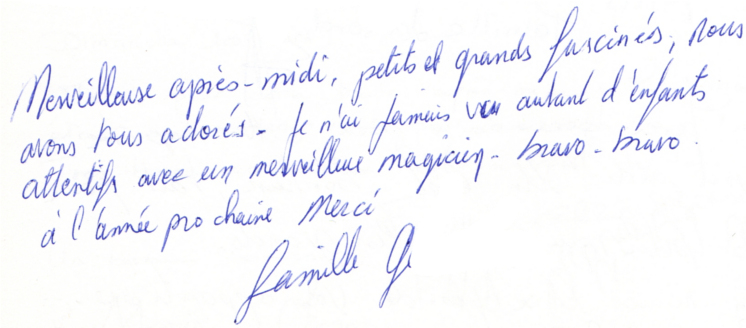 Merveilleuse après-midi, petits et grands fascinés, nous
avons tous adorés. Je n'ai jamais vu autant d'enfants
attentifs avec un merveilleux magicien - bravo - bravo.
à l'année prochaine Merci
famille G